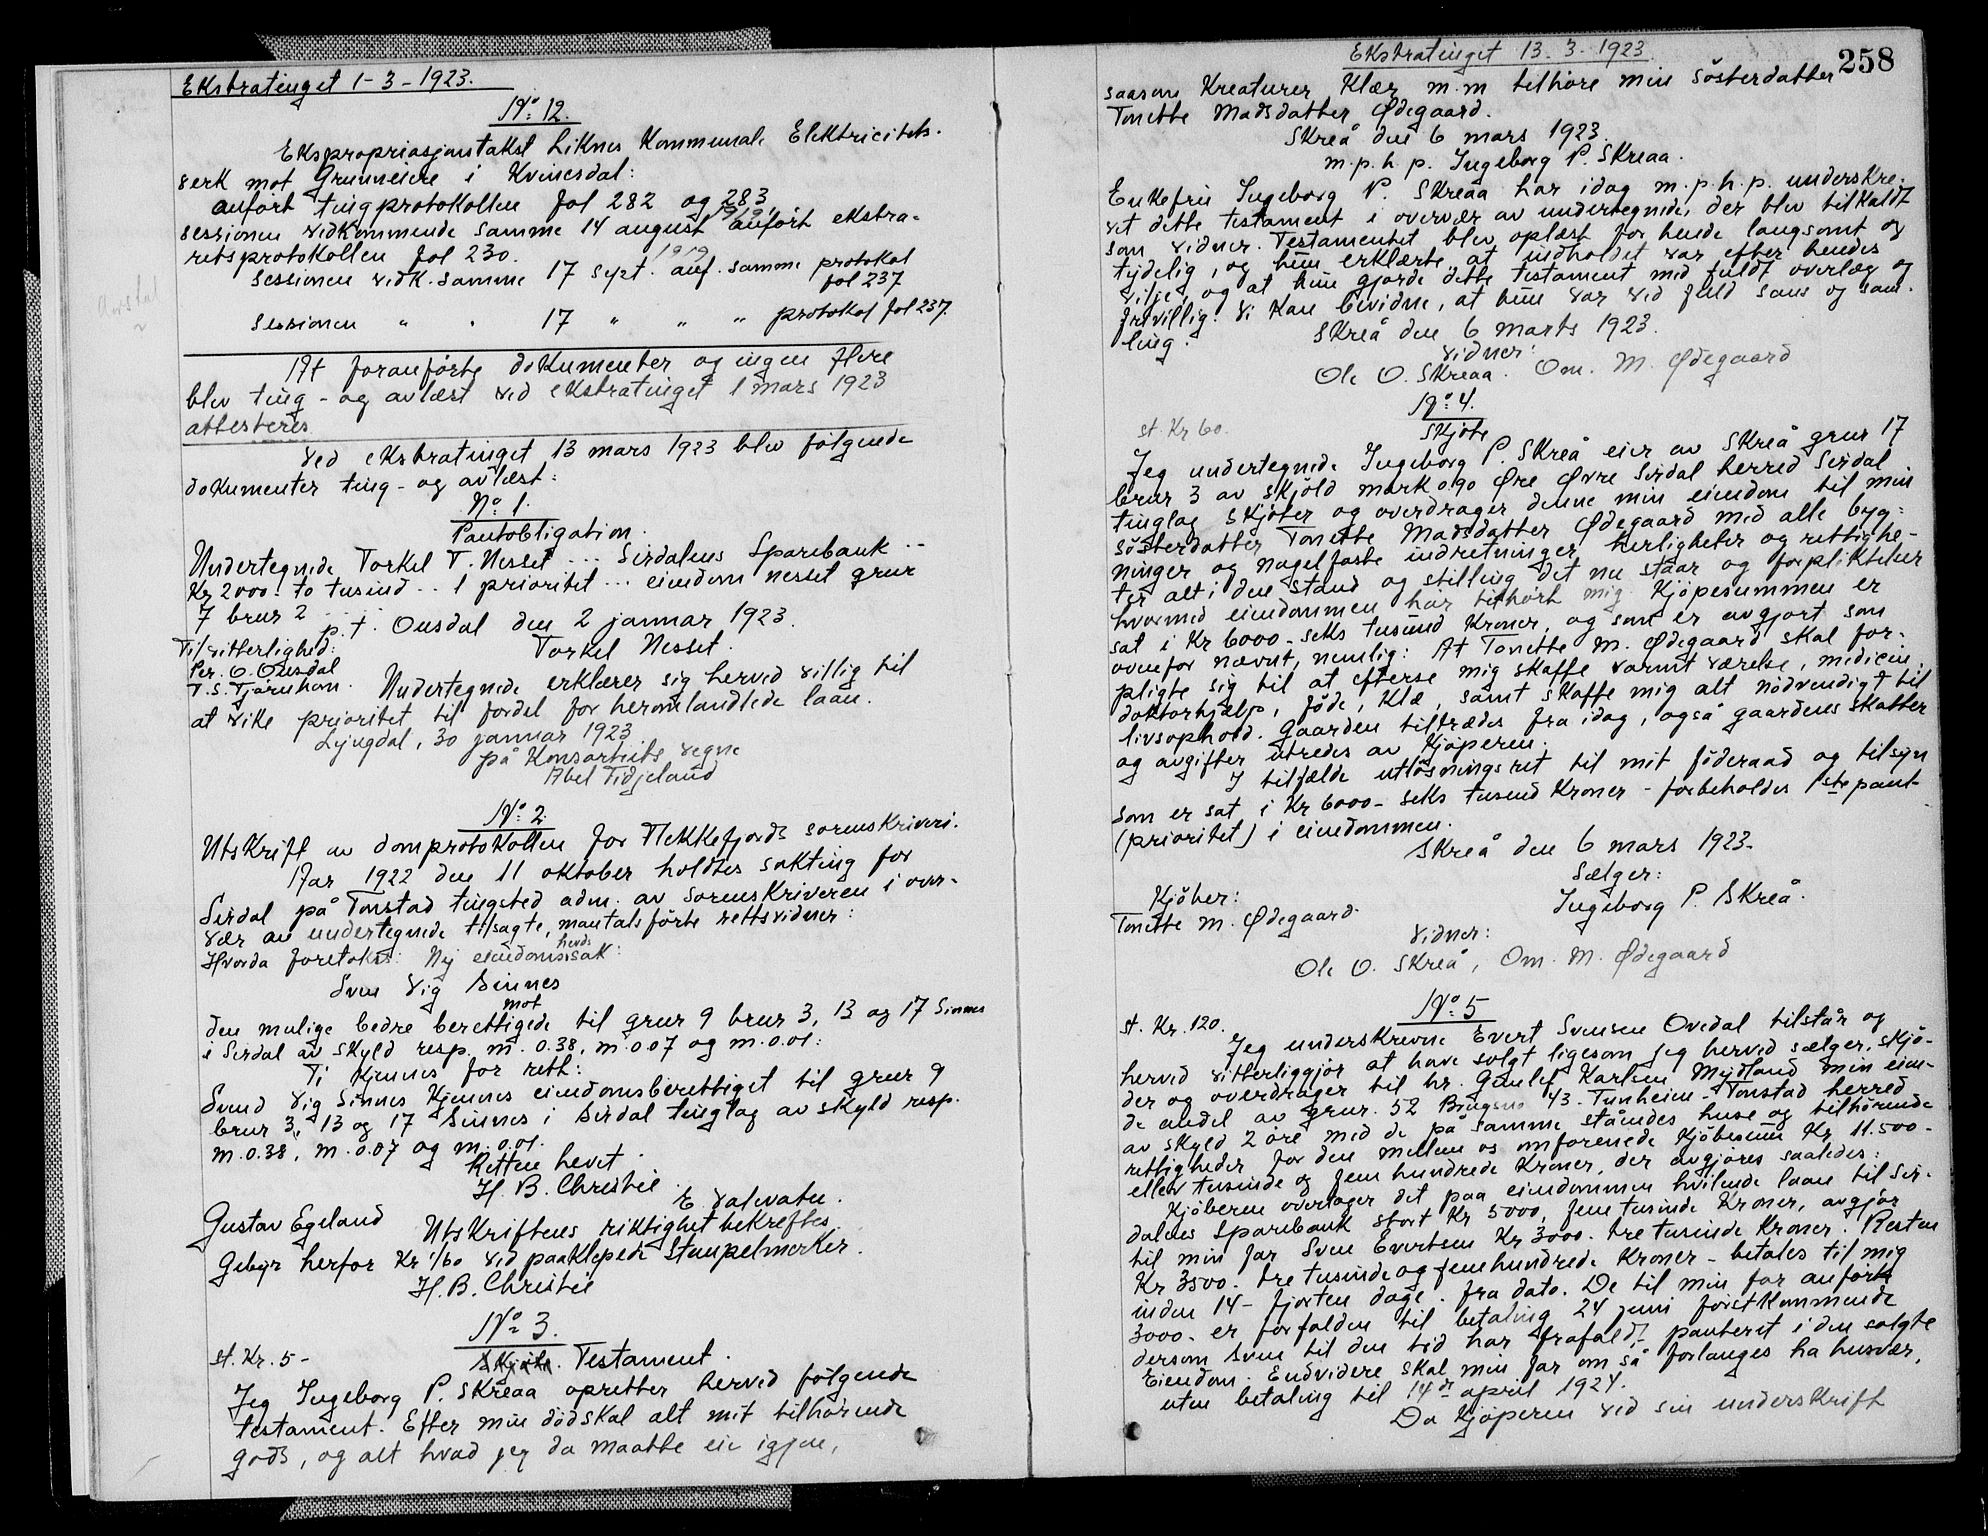 Ekstratinget 1-3-1923.
No 12.
Ekspropriasjonstakst Liknes Kommunale Elektricitets-
verk mot Grunneiere i Kvinesdal:
anført tingprotokollen fol 282 og 283
sessionen vedkommende samme 14 august 1919 anført ekstra-
retsprotokollen fol 230.
Sessionen vedk. samme 17 sept. 1919 anf. samme protokol
fol 237
Sessionen " " 17 " " " protokol fol 237.
At foranførte dokumenter og ingen flere
blev ting- og avlæst ved ekstratinget 1 mars 1923
attesteres
Ved ekstratinget 13 mars 1923 blev følgende
dokumenter ting- og avlæst:
No 1.
Pantobligation.
Undertegnede Torkel T. Nesset ... Sirdalens Sparebank ..
Kr 2000 - to tusind .. 1 prioritet ... eiendom nesset grnr
7 brnr 2 ...
p.t. Ousdal den 2 januar 1923.
Til vitterlighed: Torkel Nesset.
Per. O. Ousdal
T. S. Tjørnhom. Undertegnede erklærer sig herved villig til
at vike prioritet til fordel for heromhandlede laan.
Lyngdal, 30 januar 1923
på Konsortiets vegne
Abel Tidjeland
No 2.
Utskrift av domprotokollen for Flekkefjords sorenskriveri.
Aar 1922 den 11 oktober holdtes sakting for
Sirdal på Tonstad tingsted adm. av Sorenskriveren i over-
vær av undertegnede tilsagte, mantalsførte rettsvidner:
Hvorda foretokes: Ny eiendomshevdssak:
Sven Vig Sinnes
mot
den mulige bedre berettigede til grnr 9 brnr 3, 13 og 17 Sinnes
i Sirdal av skyld resp. m. 0.38, m. 0.07 og m. 0.01:
Ti kjennes for rett:
Svend Vig Sinnes kjennes eiendomsberettiget til grnr 9
brnr 3, 13 og 17 Sinnes i Sirdal tinglag av skyld resp.
m. 0.38, m. 0.07 og m. 0.01.
Retten hevet.
H. B. Christie.
E. Dalevatn.
Gustav Egeland Utskriftens riktighet bekreftes.
Gebyr herfor Kr 1/60 ved paaklæpede Stempelmerker.
H. B. Christie
No 3.
st. Kr. 5 - Skjøte. Testament.
Jeg Ingeborg P. Skreaa opretter herved følgende
testament. Efter min död skal alt mit tilhörende
gods, og alt hvad jeg da maatte eie igjen,
Ekstratinget 13-3-1923 258
saasom Kreaturer Klær m.m tilhöre min Sösterdatter
Tonette Madsdatter Ødegaard.
Skreå den 6 mars 1923.
m.p.h.p. Ingeborg P. Skreaa.
Enkefru Ingeborg P. Skreaa har idag m.p.h.p. underskre-
vet dette testament i overvær av undertegnede, der blev tilkaldt
som vidner. Testamentet blev oplæst for hende langsomt og
tydelig, og hun erklærte at indholdet var efter hendes
vilje, og at hun gjorde dette testament med fuldt overlæg og
frivillig. Vi kan bevidne, at hun var ved fuld sans og sam-
ling.
Skreå den 6 marts 1923.
Vidner:
Ole O. Skreaa. Om. M. Ødegaard
No 4.
st. Kr 60. Skjöte
Jeg undertegnede Ingeborg P. Skreå eier av Skreå grnr 17
brnr 3 av Skjöld mark 0.90 Øre Øvre Sirdal herred Sirdal
tinglag skjöter og overdrager denne min eiendom til min
sösterdatter Tonette Madsdatter Ødegaard med alle byg-
ninger og nagelfaste indretninger, herligheter og rettighe-
ter alt i den stand og stilling det nu staar og forpliktelser
hvormed eiendommen har tilhørt mig Kjöpesummen er
sat i Kr 6000 - seks tusind Kroner, og som er avgjort som
ovenfor nævnt, nemlig: At Tonette M. Ødegaard skal for-
pligte sig til at efterse mig skaffe varmt værelse, medicin,
doktorhjælp, föde, klæ, samt skaffe mig alt nödvendigt til
livsophold. Gaarden tiltrædes fra idag, også gaardens skatter
og avgifter utredes av Kjøperen.
I tilfælde utlösningsret til mit föderaad og tilsyn
som er sat i Kr 6000 - seks tusend Kroner - forbeholdes 1ste pant
(prioritet) i eiendommen.
Skreå den 6 mars 1923.
Sælger:
Kjöber: Ingeborg P. Skreå.
Tonette M. Ødegaard.
Vidner:
Ole O. Skreå, Om. M. Ødegaard
No 5
st. Kr. 120.
Jeg underskrevne Evert Svensen Ovedal tilstår og
herved vitterliggjör at have solgt ligesom jeg herved sælger, skjö-
der og overdrager til hr. Gunlef Karlsen Mydland min eien-
de andel av grnr. 52 Brugsno 43. Tunheim - Tonstad herred
av skyld 2 öre med de på samme ståendes huse og tilhörende
rettigheder for den mellem os omforenede Kjöbesum Kr 11.500 -
ellev tusinde og fem hundrede Kroner, der avgjöres saaledes:
Kjöberen overtager det paa eiendommen hvilende laan til Sir-
dalens Sparebank stort Kr 5000, fem tusinde Kroner, avgjør
til min far Sven Evertsen Kr 3000. tre tusinde Kroner. Resten
Kr 3500. tre tusinde og femhundrede Kroner - betales til mig
inden 14 - fjorten dage. fra dato. De til min far anførte
3000 - er forfalden til betaling 24 juni förstkommende
dersom Sven til den tid har frafaldt panteret i den solgte
Eiendom. Endvidere skal min far om så forlanges ha husvær,
uten betaling til 14de april 1924.
Da Kjøperen ved sin underskrift